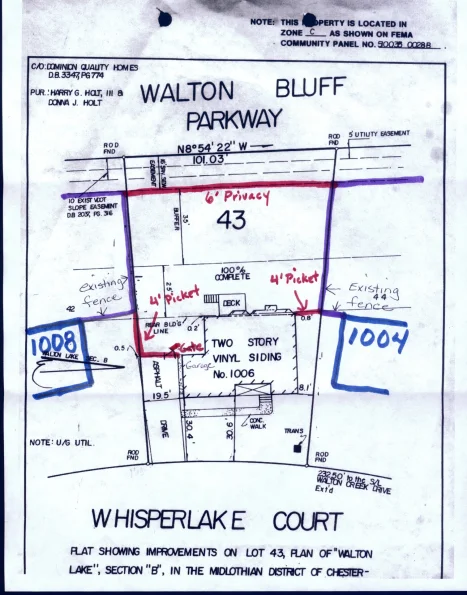 NOTE: THIS PROPERTY IS LOCATED IN
ZONE C AS SHOWN ON FEMA
COMMUNITY PANEL NO. 510035 0028B
C/O: DOMINION QUALITY HOMES
D.B. 3347, PG 774
PUR.: HARRY G. HOLT, III &
DONNA J. HOLT
WALTON BLUFF
PARKWAY
ROD
FND
N8°54'22" W
101.03'
ROD
FND
5' UTILITY EASEMENT
EASEMENT
10' EXIST VDOT
SLOPE EASEMENT
D.B. 2037, PG. 316
6' Privacy
35'
BUFFER
43
existing
fence
42
100%
COMPLETE
25'
4' Picket
4' Picket
Existing
44
fence
DECK
REAR BLD'G
LINE
0.2'
0.8'
1008
WALTON LAKE SEC. B
1004
0.5'
Gate
Garage
TWO STORY
VINYL SIDING
No. 1006
ASPHALT
DRIVE
19.5'
8.1'
30.4'
CONC.
WALK
NOTE: U/G UTIL.
TRANS
ROD
FND
ROD
FND
232.50' to the S/L
WALTON CREEK DRIVE
Ext'd
WHISPERLAKE COURT
PLAT SHOWING IMPROVEMENTS ON LOT 43, PLAN OF "WALTON
LAKE", SECTION "B", IN THE MIDLOTHIAN DISTRICT OF CHESTER-